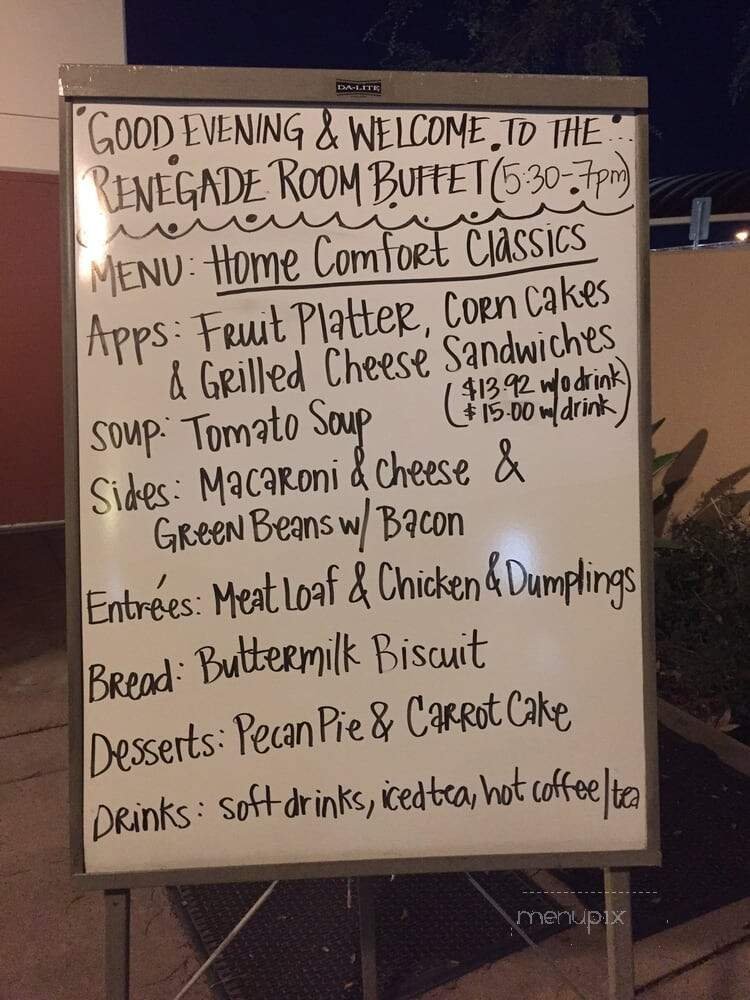 DA-LITE
GOOD EVENING & WELCOME TO THE...
RENEGADE ROOM BUFFET (5:30-7pm)
MENU: Home Comfort Classics
Apps: Fruit Platter, Corn Cakes
& Grilled Cheese Sandwiches
($13.92 w/o drink
$15.00 w/drink)
Soup: Tomato Soup
Sides: Macaroni & Cheese &
Green Beans w/ Bacon
Entrées: Meat Loaf & Chicken & Dumplings
Bread: Buttermilk Biscuit
Desserts: Pecan Pie & Carrot Cake
Drinks: soft drinks, iced tea, hot coffee/tea
menupix